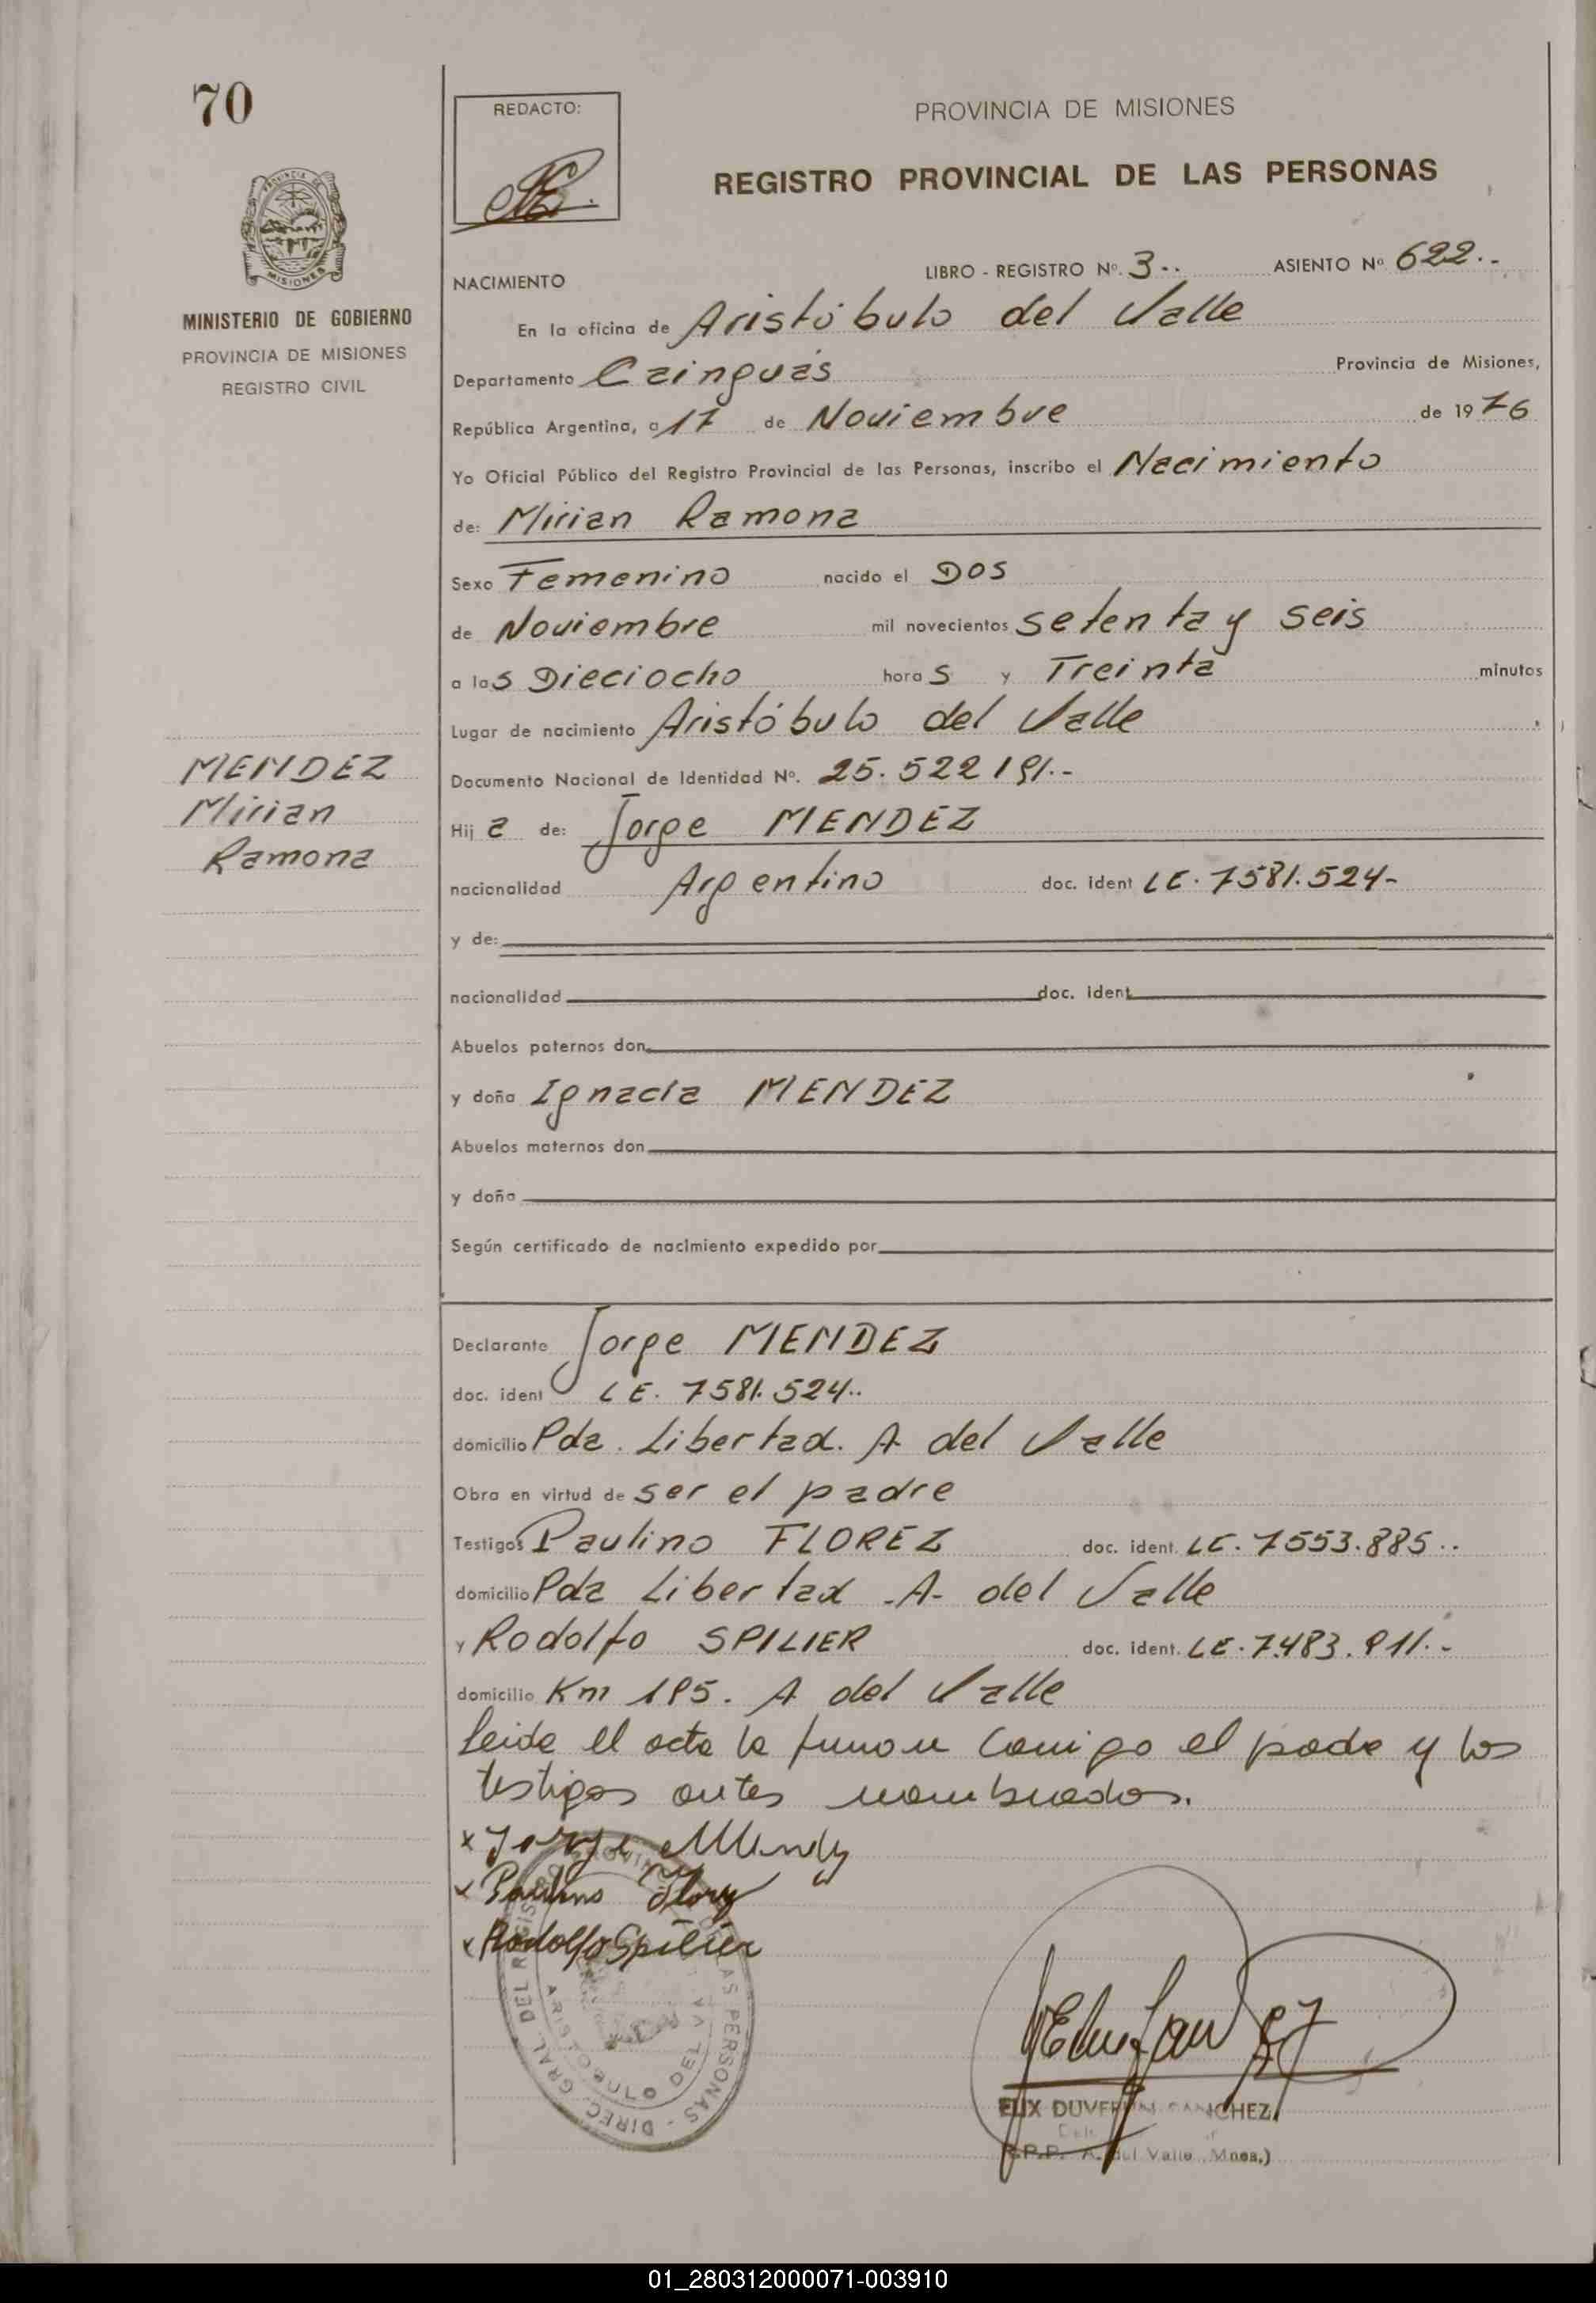 70
REDACTO:
PROVINCIA DE MISIONES
REGISTRO PROVINCIAL DE LAS PERSONAS
PROVINCIA DE
MISIONES
MINISTERIO DE GOBIERNO
PROVINCIA DE MISIONES
REGISTRO CIVIL
NACIMIENTO LIBRO - REGISTRO Nº. 3.. ASIENTO Nº 622..-
En la oficina de Aristóbulo del Valle
Departamento Cainguás Provincia de Misiones,
República Argentina, a 17 de Noviembre de 1976
Yo Oficial Público del Registro Provincial de las Personas, inscribo el Nacimiento
de: Mirian Ramona
Sexo Femenino nacido el Dos
de Noviembre mil novecientos setenta y seis
a las Dieciocho horas y Treinta minutos
Lugar de nacimiento Aristóbulo del Valle
MENDEZ
Mirian
Ramona
Documento Nacional de Identidad Nº. 25.522 191.-
Hija de: Jorge MENDEZ
nacionalidad Argentino doc. ident LE. 7581.524-
y de:
nacionalidad doc. ident
Abuelos paternos don
y doña Ignacia MENDEZ
Abuelos maternos don
y doña
Según certificado de nacimiento expedido por
Declarante Jorge MENDEZ
doc. ident LE. 7581.524..
domicilio Pda. Libertad. A del Valle
Obra en virtud de ser el padre
Testigos Paulino FLOREZ doc. ident. LE. 7553.885..
domicilio Pda Libertad -A- del Valle
y Rodolfo SPILIER doc. ident. LE. 7.483.911.-
domicilio Km 195. A del Valle
Leida el acta la firman conmigo el padre y los
testigos antes nombrados.
x Jorge Mendez
x Paulino Florez
x Rodolfo Spilier
DIREC. GRAL. DEL REGISTRO PROVINCIAL DE LAS PERSONAS -
ARISTOBULO DEL VALLE
ELIX DUVER SANCHEZ
R.P.P. A. del Valle Mnes.)
01_280312000071-003910